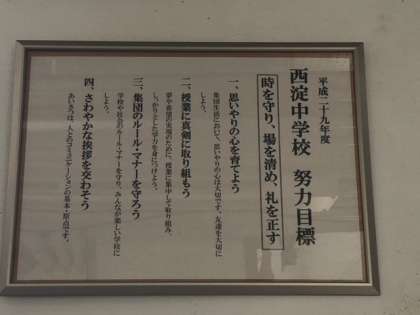 平成二十九年度
西淀中学校 努力目標
時を守り、場を清め、礼を正す
一、思いやりの心を育てよう
集団生活において、思いやりの心は大切です。友達を大切に
しよう。
二、授業に真剣に取り組もう
夢や希望の実現のために、授業に集中して取り組み、
しっかりとした学力を身につけよう。
三、集団のルール・マナーを守ろう
学校や社会のルール・マナーを守り、みんなが楽しい学校に
しよう。
四、さわやかな挨拶を交わそう
あいさつは、人とのコミュニケーションの基本・原点です。